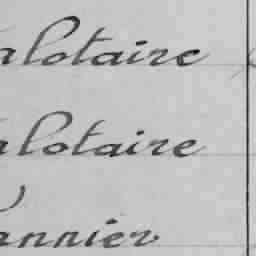 alotaire
alotaire
annier